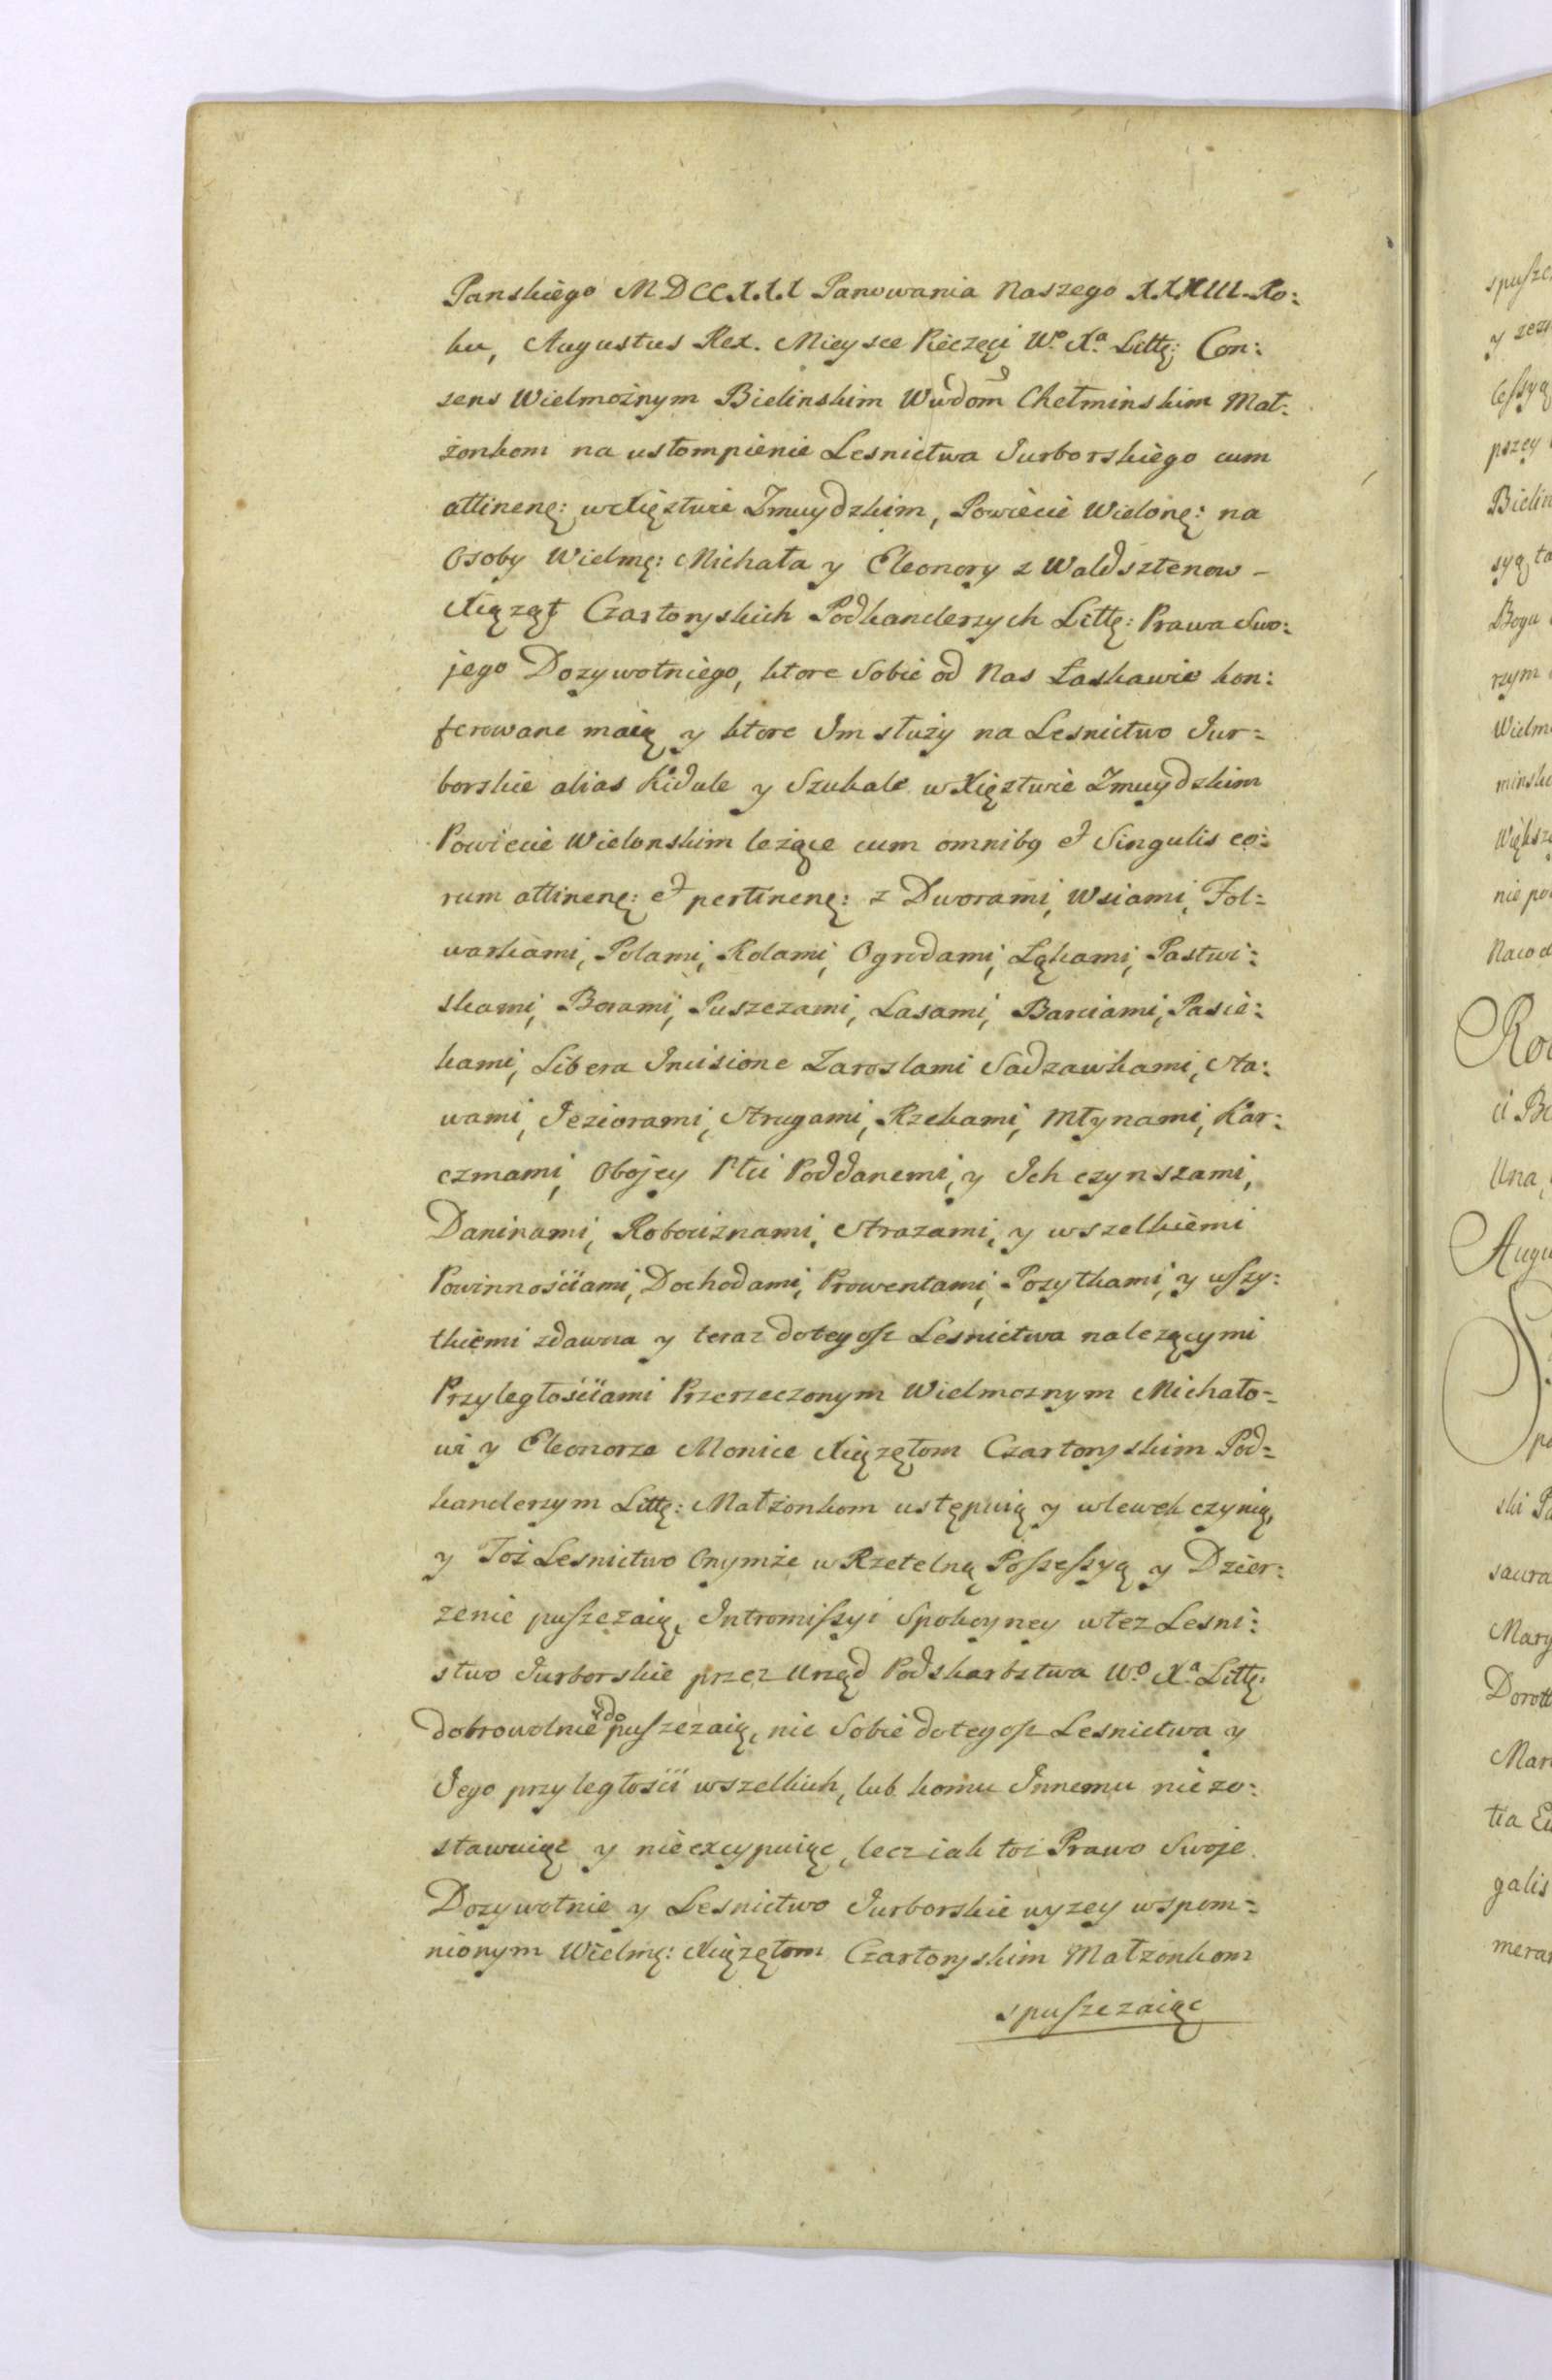 Panskiego MDCCXXX Panowania Naszego XXXIII-Ro:
ku, Augustus Rex. Mieysce Pieczęci Wº Xª Littę: Con:
sens Wielmożnym Bielinskim Wwdom Chełminskim Mał:
żonkom na ustompienie Lesnictwa Jurborskiego cum
attinenę: w Xięztwie Zmuydzkim, Powiecie Wielonę: na
Osoby Wielmę: Michała y Eleonory z Waldsztenow –
Xiąząt Czartoryskich Podkanclerzych Littę: Prawa Swo:
jego Dozywotniego, ktore Sobie od Nas Łaskawie kon:
ferowane maią y ktore Im służy na Lesnictwo Jur=
borskie alias Kidule y Szukale w Xięztwie Zmuydzkim
Powiecie Wielonskim leżące cum omnibg et Singulis eo:
rum attinenę: et pertinenę: z Dworami, Wsiami, Fol=
warkami, Polami, Rolami, Ogrodami, Łąkami, Pastwi:
skami, Borami, Puszczami, Lasami, Barciami, Pasie:
kami, Libera Incisione Zaroslami Sadzawkami, Sta:
wami, Jeziorami, Strugami, Rzekami, Młynami, Kar:
czmami, Obojey Płci Poddanemi, y Ich czynszami,
Daninami, Robociznami, Strazami, y wszelkiemi
Powinnościami, Dochodami, Prowentami, Pozytkami, y wſzy:
tkiemi zdawna y teraz dotegoſz Lesnictwa nalezącymi
Przyległościami Przerzeczonym Wielmoznym Michało=
wi y Eleonorze Monice Xiązętom Czartoryskim Pod=
kanclerzym Littę: Małżonkom ustępuią y wlewek czynią,
y Toż Lesnictwo Onymże w Rzetelną Poſseſsyą y Dzier:
zenie puſzczaią, Intromiſsyi Spokoyney wtez Lesni:
stwo Jurborskie przez Urząd Podskarbstwa Wº Xª Littę:
dobrowolnie ydo puſzczaią, nic Sobie dotegoſz Lesnictwa y
Jego przyległości wszelkich, lub komu Innemu niezo:
stawuiąc y nieexcypuiąc, lecz iak toż Prawo Swoje
Dozywotnie y Lesnictwo Jurborskie wyzey wspom=
nionym Wielmę: Xiązętom Czartoryskim Małzonkom
spuſzczaiąc